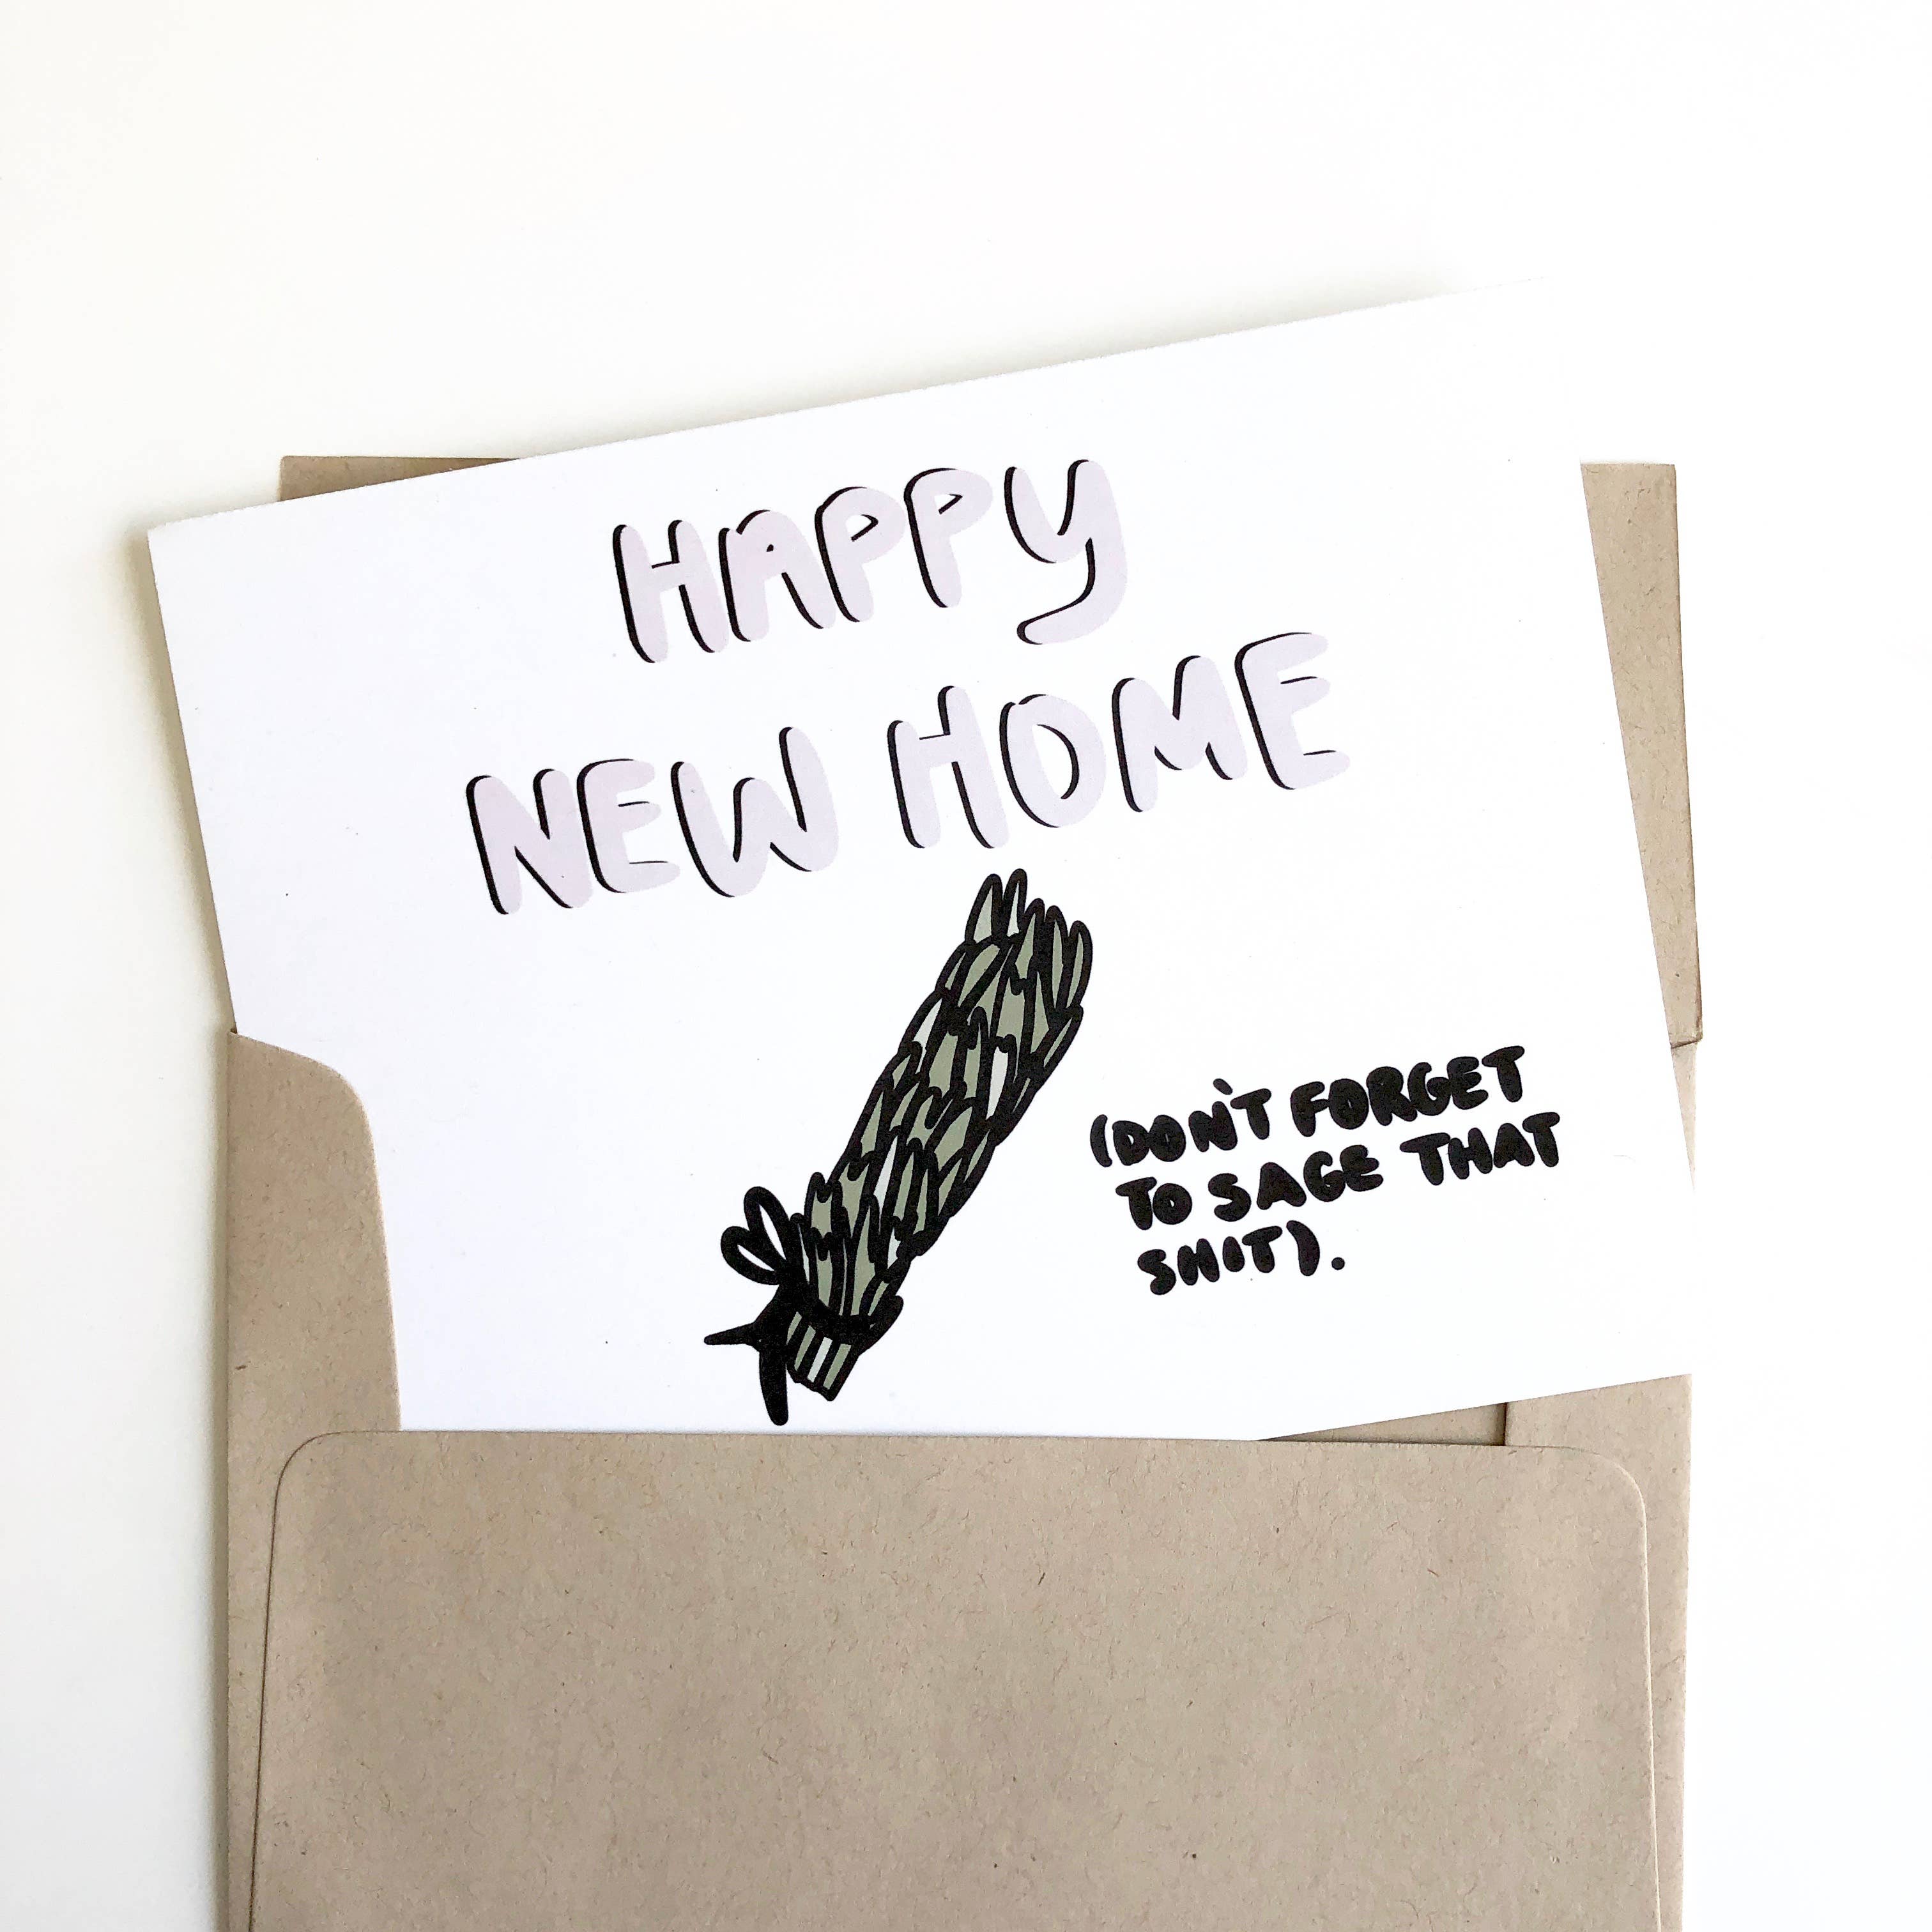 HAPPY
NEW HOME
(DON'T FORGET
TO SAGE THAT
SHIT).